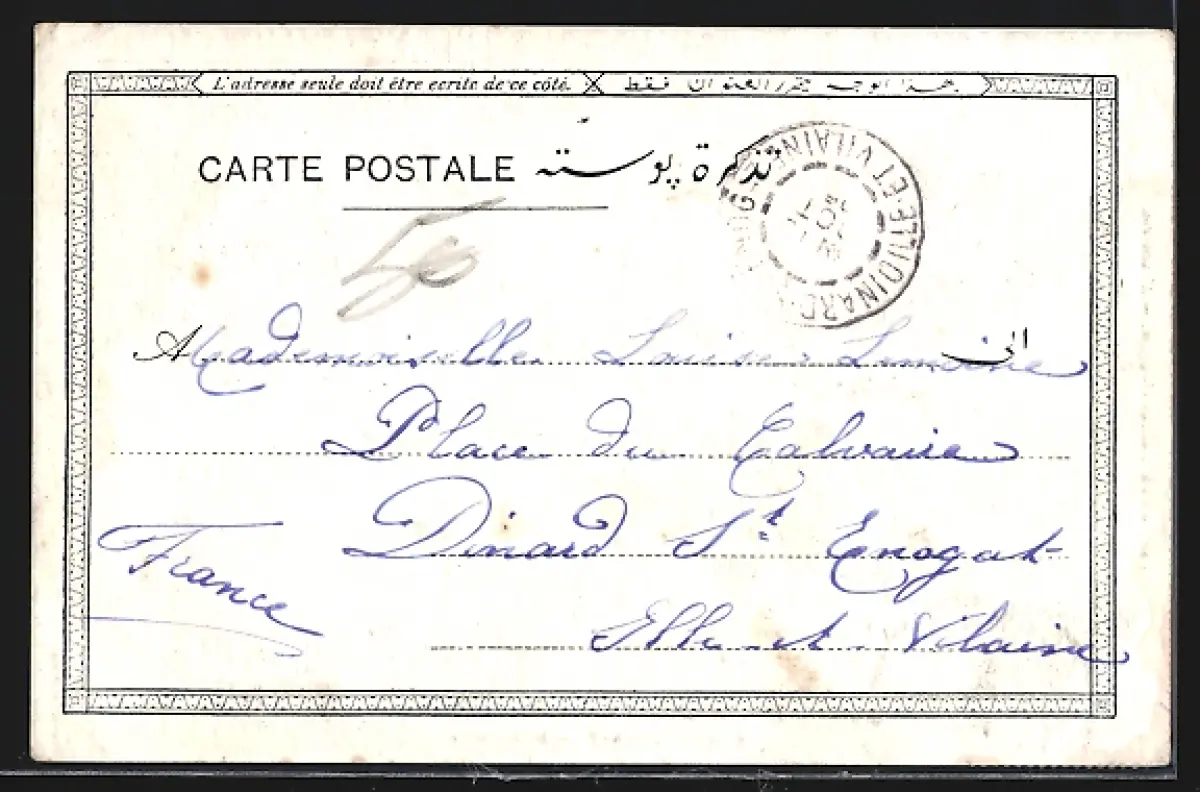 L'adresse seule doit être ecrite de ce côté. هذا الوجه يحرر العنوان فقط
CARTE POSTALE تذكرة پوسته
DINARD ILLE-ET-VILAINE
50
A الى
Mademoiselle Louise Lemoine
Place du Calvaire
Dinard St Enogat
France
Ille-et-Vilaine